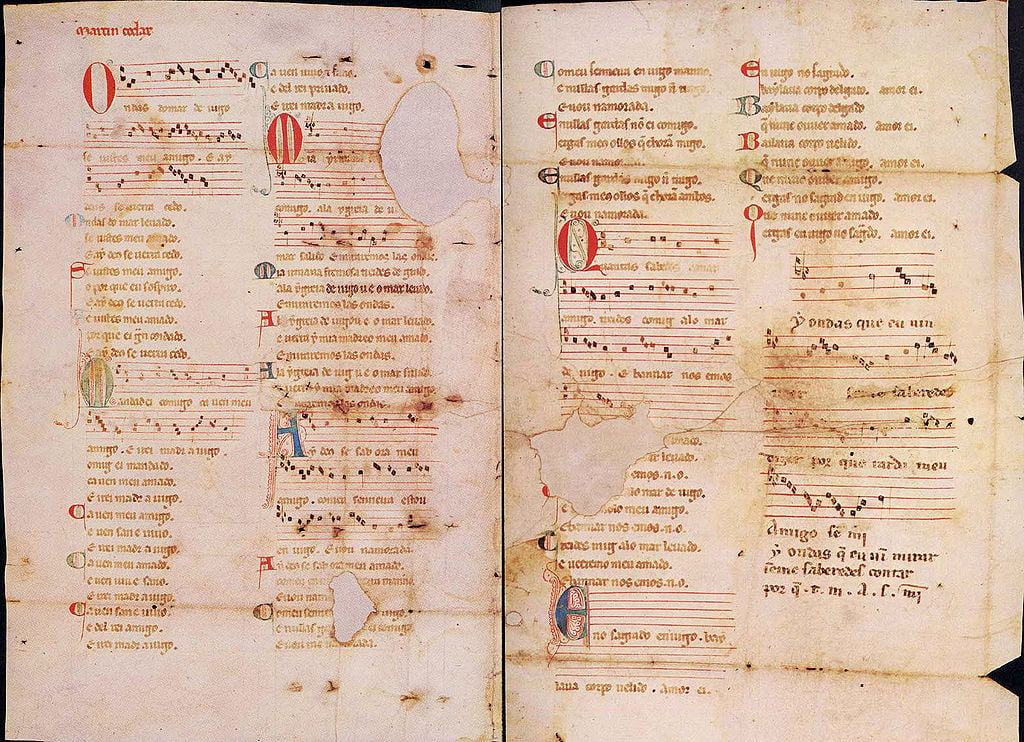 Martin codax
Ondas do mar de uigo
se uistes meu amigo. E ay
deus se uerra cedo.
Ondas do mar leuado.
se uistes meu amado.
E ay deo se uerra cedo.
Se uistes meu amigo.
o por que eu sospiro.
E ay deo se uerra cedo.
Se uistes meu amado.
por que ei grã coidado.
E ay deo se uerra cedo.
Mandad ei comigo ca uen meu
amigo. E irei madr a uigo.
comig ei mandado.
ca uen meu amado.
E irei madr a uigo.
Ca uen meu amigo.
e uen san e uiuo.
E irei madr a uigo.
Ca uen meu amado.
e uen uiuo e sano.
E irei madr a uigo.
Ca uen san e uiuo.
e del rei amigo.
E irei madr a uigo.
Ca uen uiuo e sano.
e del rei priuado.
E irei madr a uigo.
Mia yrmana
comigo. ala ygreia de u
mar salido. E miraremos las ondas.
Mia irmana fremosa treides de grado.
ala ygreia de uigo u e o mar leuado.
E miraremos las ondas.
Ala ygreia de uigo u e o mar leuado.
e uerra y mia madre e o meu amado.
E miraremos las ondas.
Ala ygreia de uig u e o mar salido.
e uerra y mia madre e o meu amigo.
E miraremos las ondas.
Ay deo se sab ora meu
amigo. comeu senneira estou
en uigo. E uou namorada.
Ay deo se sab ora meu amado.
comeu en uigo manno.
E uou nam
Comeu senneira uigo.
e nullas g comigo.
E uou namorada.
Comeu senneira en uigo manno.
e nullas gardas migo ñ trago.
E uou namorada.
E nullas gardas nõ ei comigo.
ergas meus ollos q̃ chorã migo.
E uou namo
E nullas gardas migo ñ trago.
ergas meus ollos q̃ chorã ambos.
E uou namorada.
Quantas sabedes amar
amigo. treides comig alo mar
de uigo. E bannar nos emos
amado.
leuado.
emos. n. o.
lo mar de uigo.
meu amigo.
E bannar nos emos. n. o.
Treides mig alo mar leuado.
e ueeremo meu amado.
E bannar nos emos. n. o.
Eno sagrado en uigo. bay
laua corpo uelido. amor ei.
En uigo no sagrado.
baylaua corpo delgado. amor ei.
Baylaua corpo delgado
q̃ nunc ouuer amado. amor ei.
Bailaua corpo uelido.
q̃ nunc ouuer amigo. amor ei.
Que nunc ouuer amigo.
ergas no sagrad en uigo. amor ei.
Que nunc ouuer amado.
ergas en uigo no sagrado. amor ei.
Y ondas que eu uin
ueer se me saberedes
dizer por que tarda meu
Amigo sẽ mi
Y ondas q̃ eu uĩ mirar
se me saberedes contar
por q̃ . t. m. A. s. mi